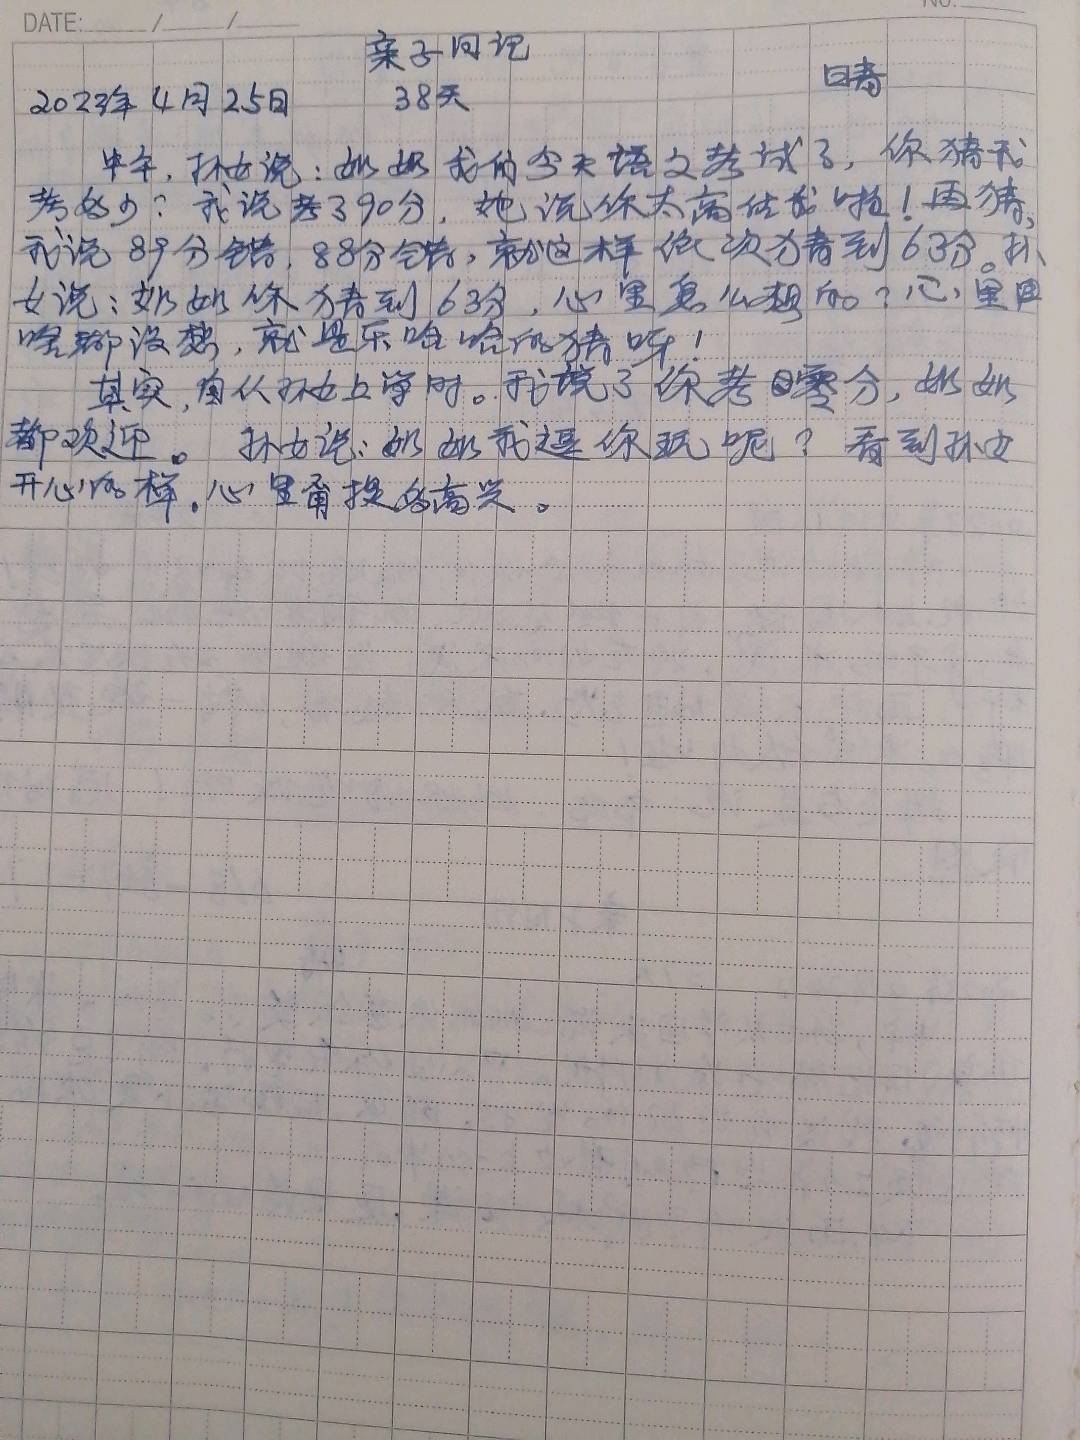 DATE: / /
NO.
亲子日记
2023年4月25日 38天 日者
中午,孙女说:奶奶我的今天语文考试了,你猜我
考多少?我说考了90分,她说你太高估我啦!再猜,
我说89分错,88分错,就这样依次猜到63分。孙
女说:奶奶你猜到63分,心里怎么想的?心里
啥都没想,就是乐哈哈的猜呀!
其实,自从孙女上学时。我说了你考零分,奶奶
都欢迎。 孙女说:奶奶我逗你玩呢?看到孙女
开心的样,心里甭提多高兴。